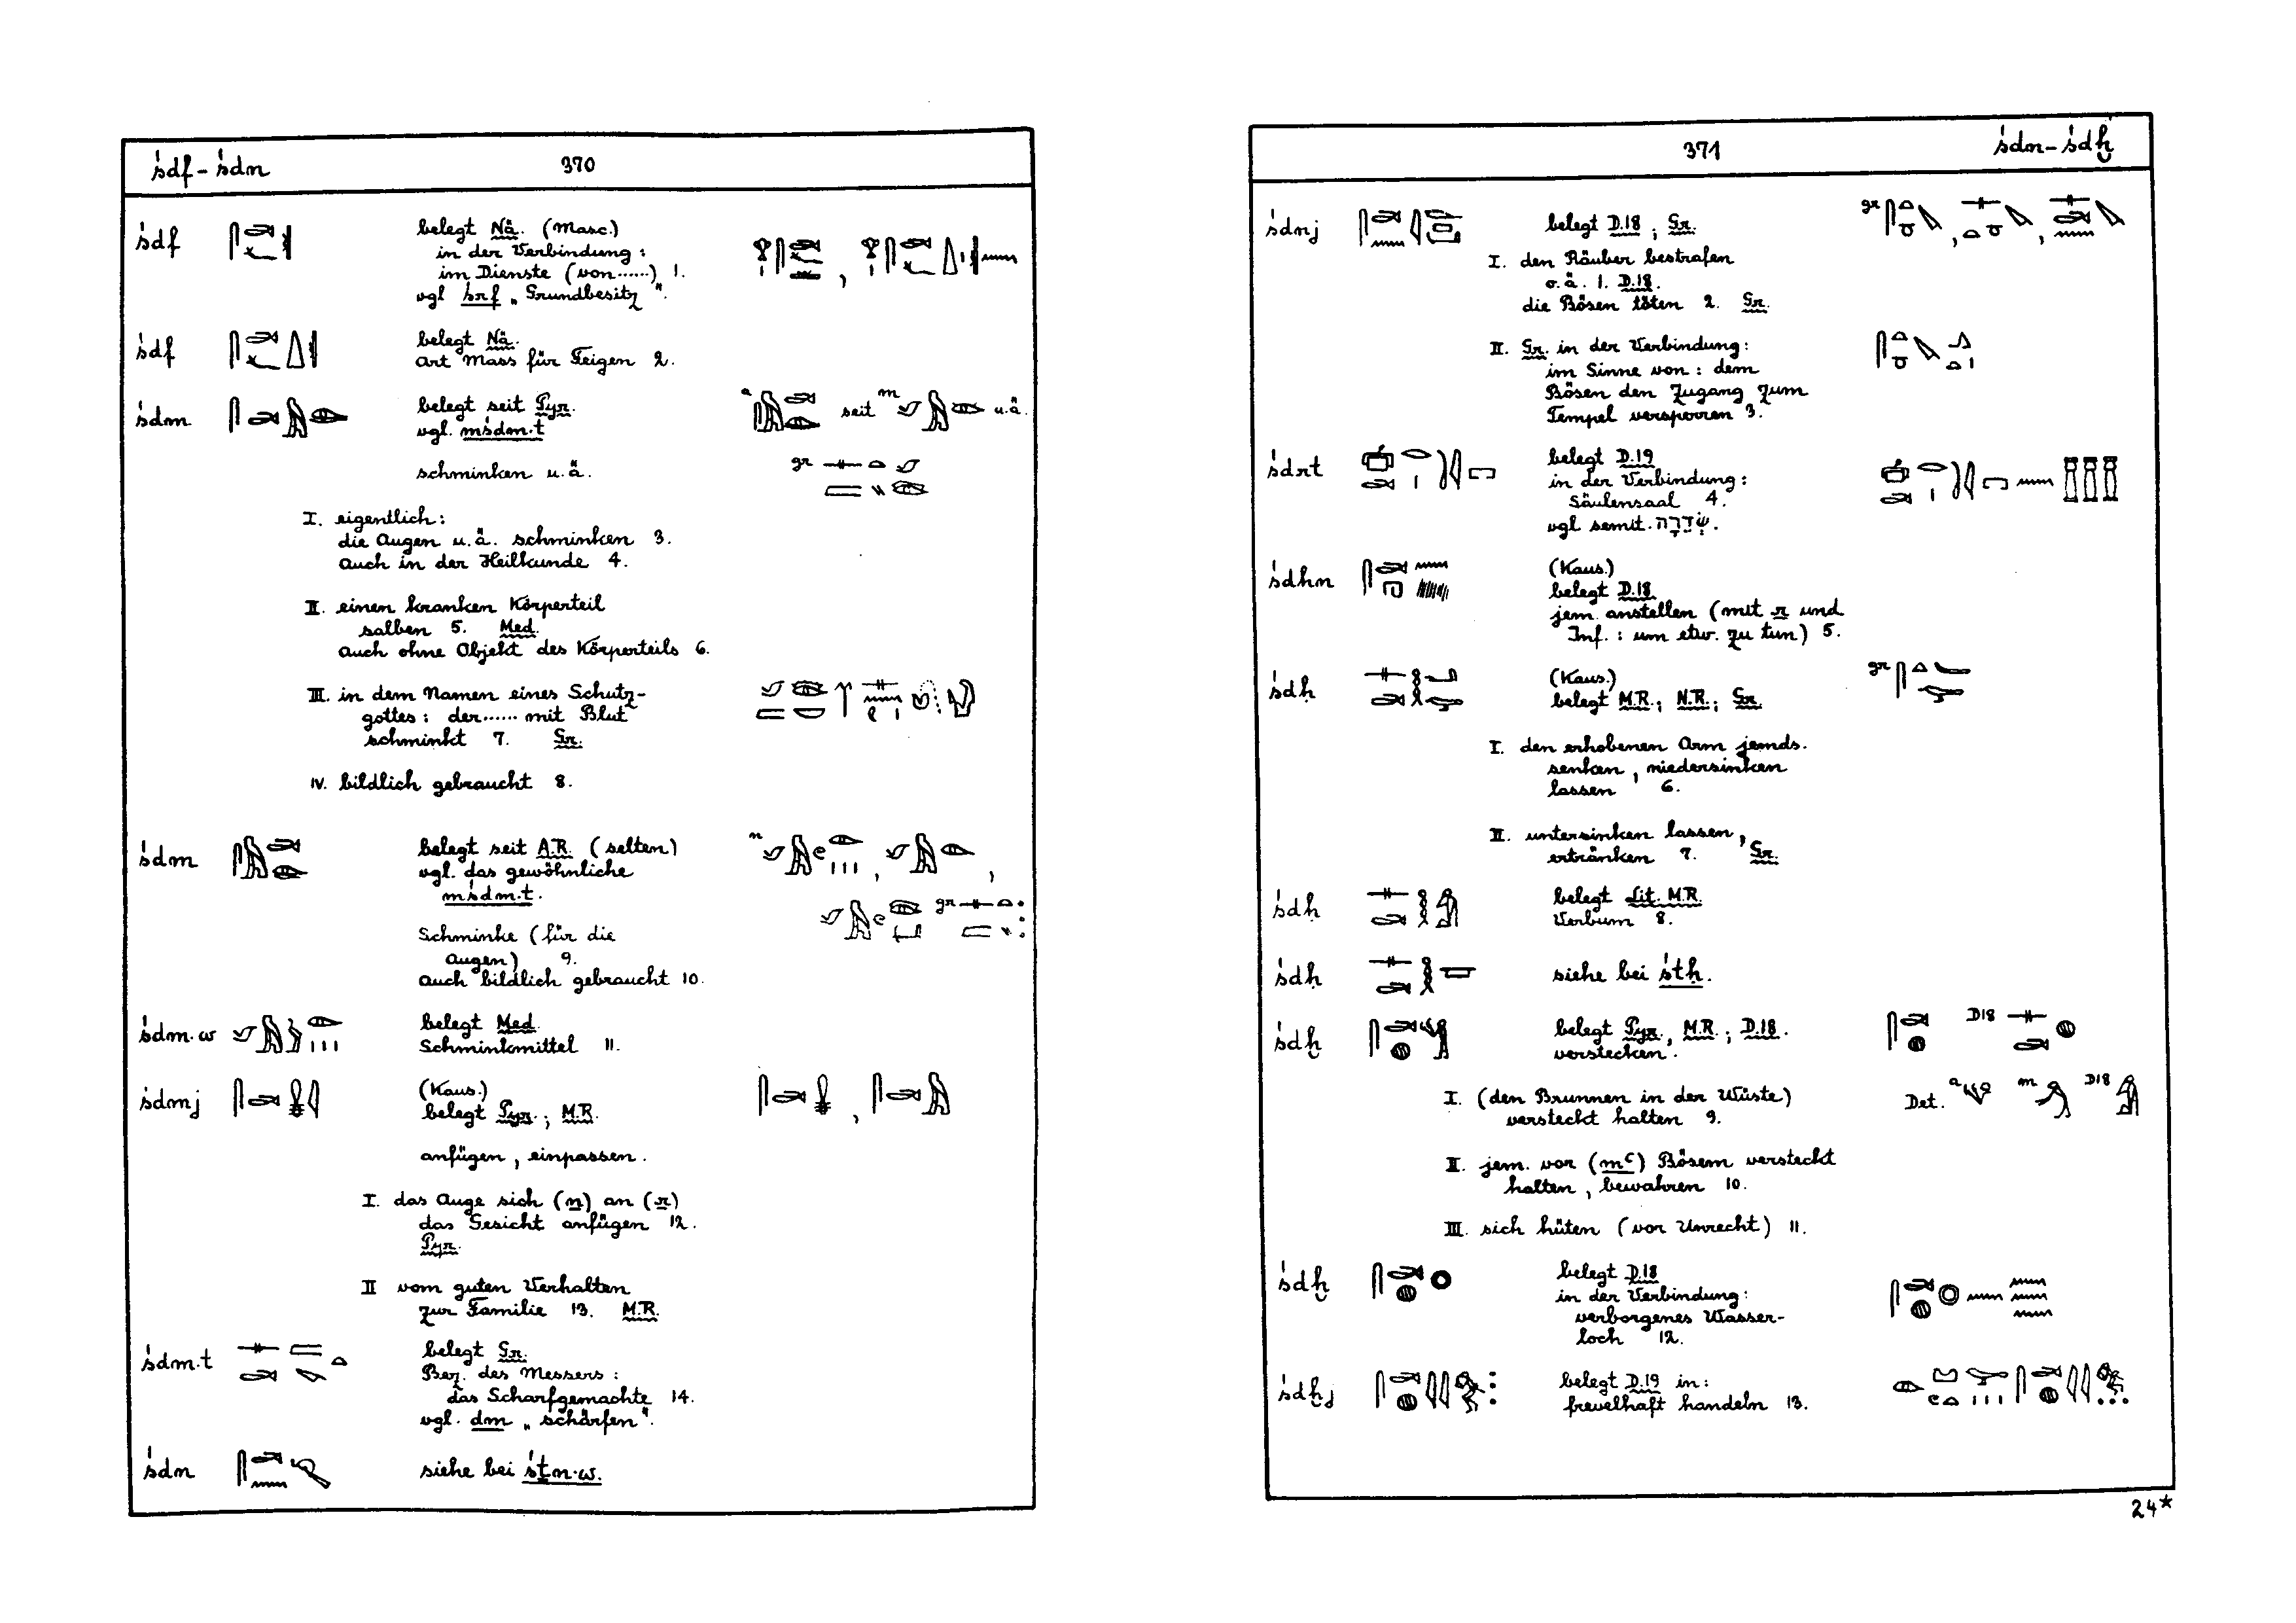 śdf – śdn 370
śdf belegt Nä. (Masc.)
in der Verbindung:
im Dienste (von ......) 1.
vgl śrf „Grundbesitz".
śdf belegt Nä.
Art Mass für Feigen 2.
śdm belegt seit Pyr. a seit m u.ä.
vgl. mśdm.t
schminken u.ä. gr
I. eigentlich:
die Augen u.ä. schminken 3.
auch in der Heilkunde 4.
II. einen kranken Körperteil
salben 5. Med.
auch ohne Objekt des Körperteils 6.
III. in dem Namen eines Schutz-
gottes: der ...... mit Blut
schminkt 7. Gr.
IV. bildlich gebraucht 8.
śdm belegt seit A.R. (selten) n
vgl. das gewöhnliche
mśdm.t.
gr
Schminke (für die
Augen) 9.
auch bildlich gebraucht 10.
śdm.w belegt Med.
Schminkmittel 11.
śdmj (Kaus.)
belegt Pyr.; M.R.
anfügen, einpassen.
I. das Auge sich (n) an (r)
das Gesicht anfügen 12.
Pyr.
II vom guten Verhalten
zur Familie 13. M.R.
śdm.t belegt Gr.
Bez. des Messers:
das Scharfgemachte 14.
vgl. dm „schärfen".
śdn siehe bei śṯn.w.
371 śdn – śdḫ
śdnj belegt D.18; Gr. gr
I. den Räuber bestrafen
o.ä. 1. D.18.
die Bösen töten 2. Gr.
II. Gr. in der Verbindung:
im Sinne von: dem
Bösen den Zugang zum
Tempel versperren 3.
śdrt belegt D.19
in der Verbindung:
Säulensaal 4.
vgl semit. שְׂדֵרָה.
śdhn (Kaus.)
belegt D.18
jem. anstellen (mit r und
Inf.: um etw. zu tun) 5.
śdḥ (Kaus.) gr
belegt M.R.; N.R.; Gr.
I. den erhobenen Arm jemds.
senken, niedersinken
lassen 6.
II. untersinken lassen,
ertränken 7. Gr.
śdḥ belegt Lit. M.R.
Verbum 8.
śdḥ siehe bei śtḥ.
śdḫ belegt Pyr., M.R.; D.18. D18
verstecken.
I. (den Brunnen in der Wüste) Det. a m D18
versteckt halten 9.
II. jem. vor (mꜥ) Bösem versteckt
halten, bewahren 10.
III. sich hüten (vor Unrecht) 11.
śdḫ belegt D.18
in der Verbindung:
verborgenes Wasser-
loch 12.
śdḫj belegt D.19 in:
frevelhaft handeln 13.
24*